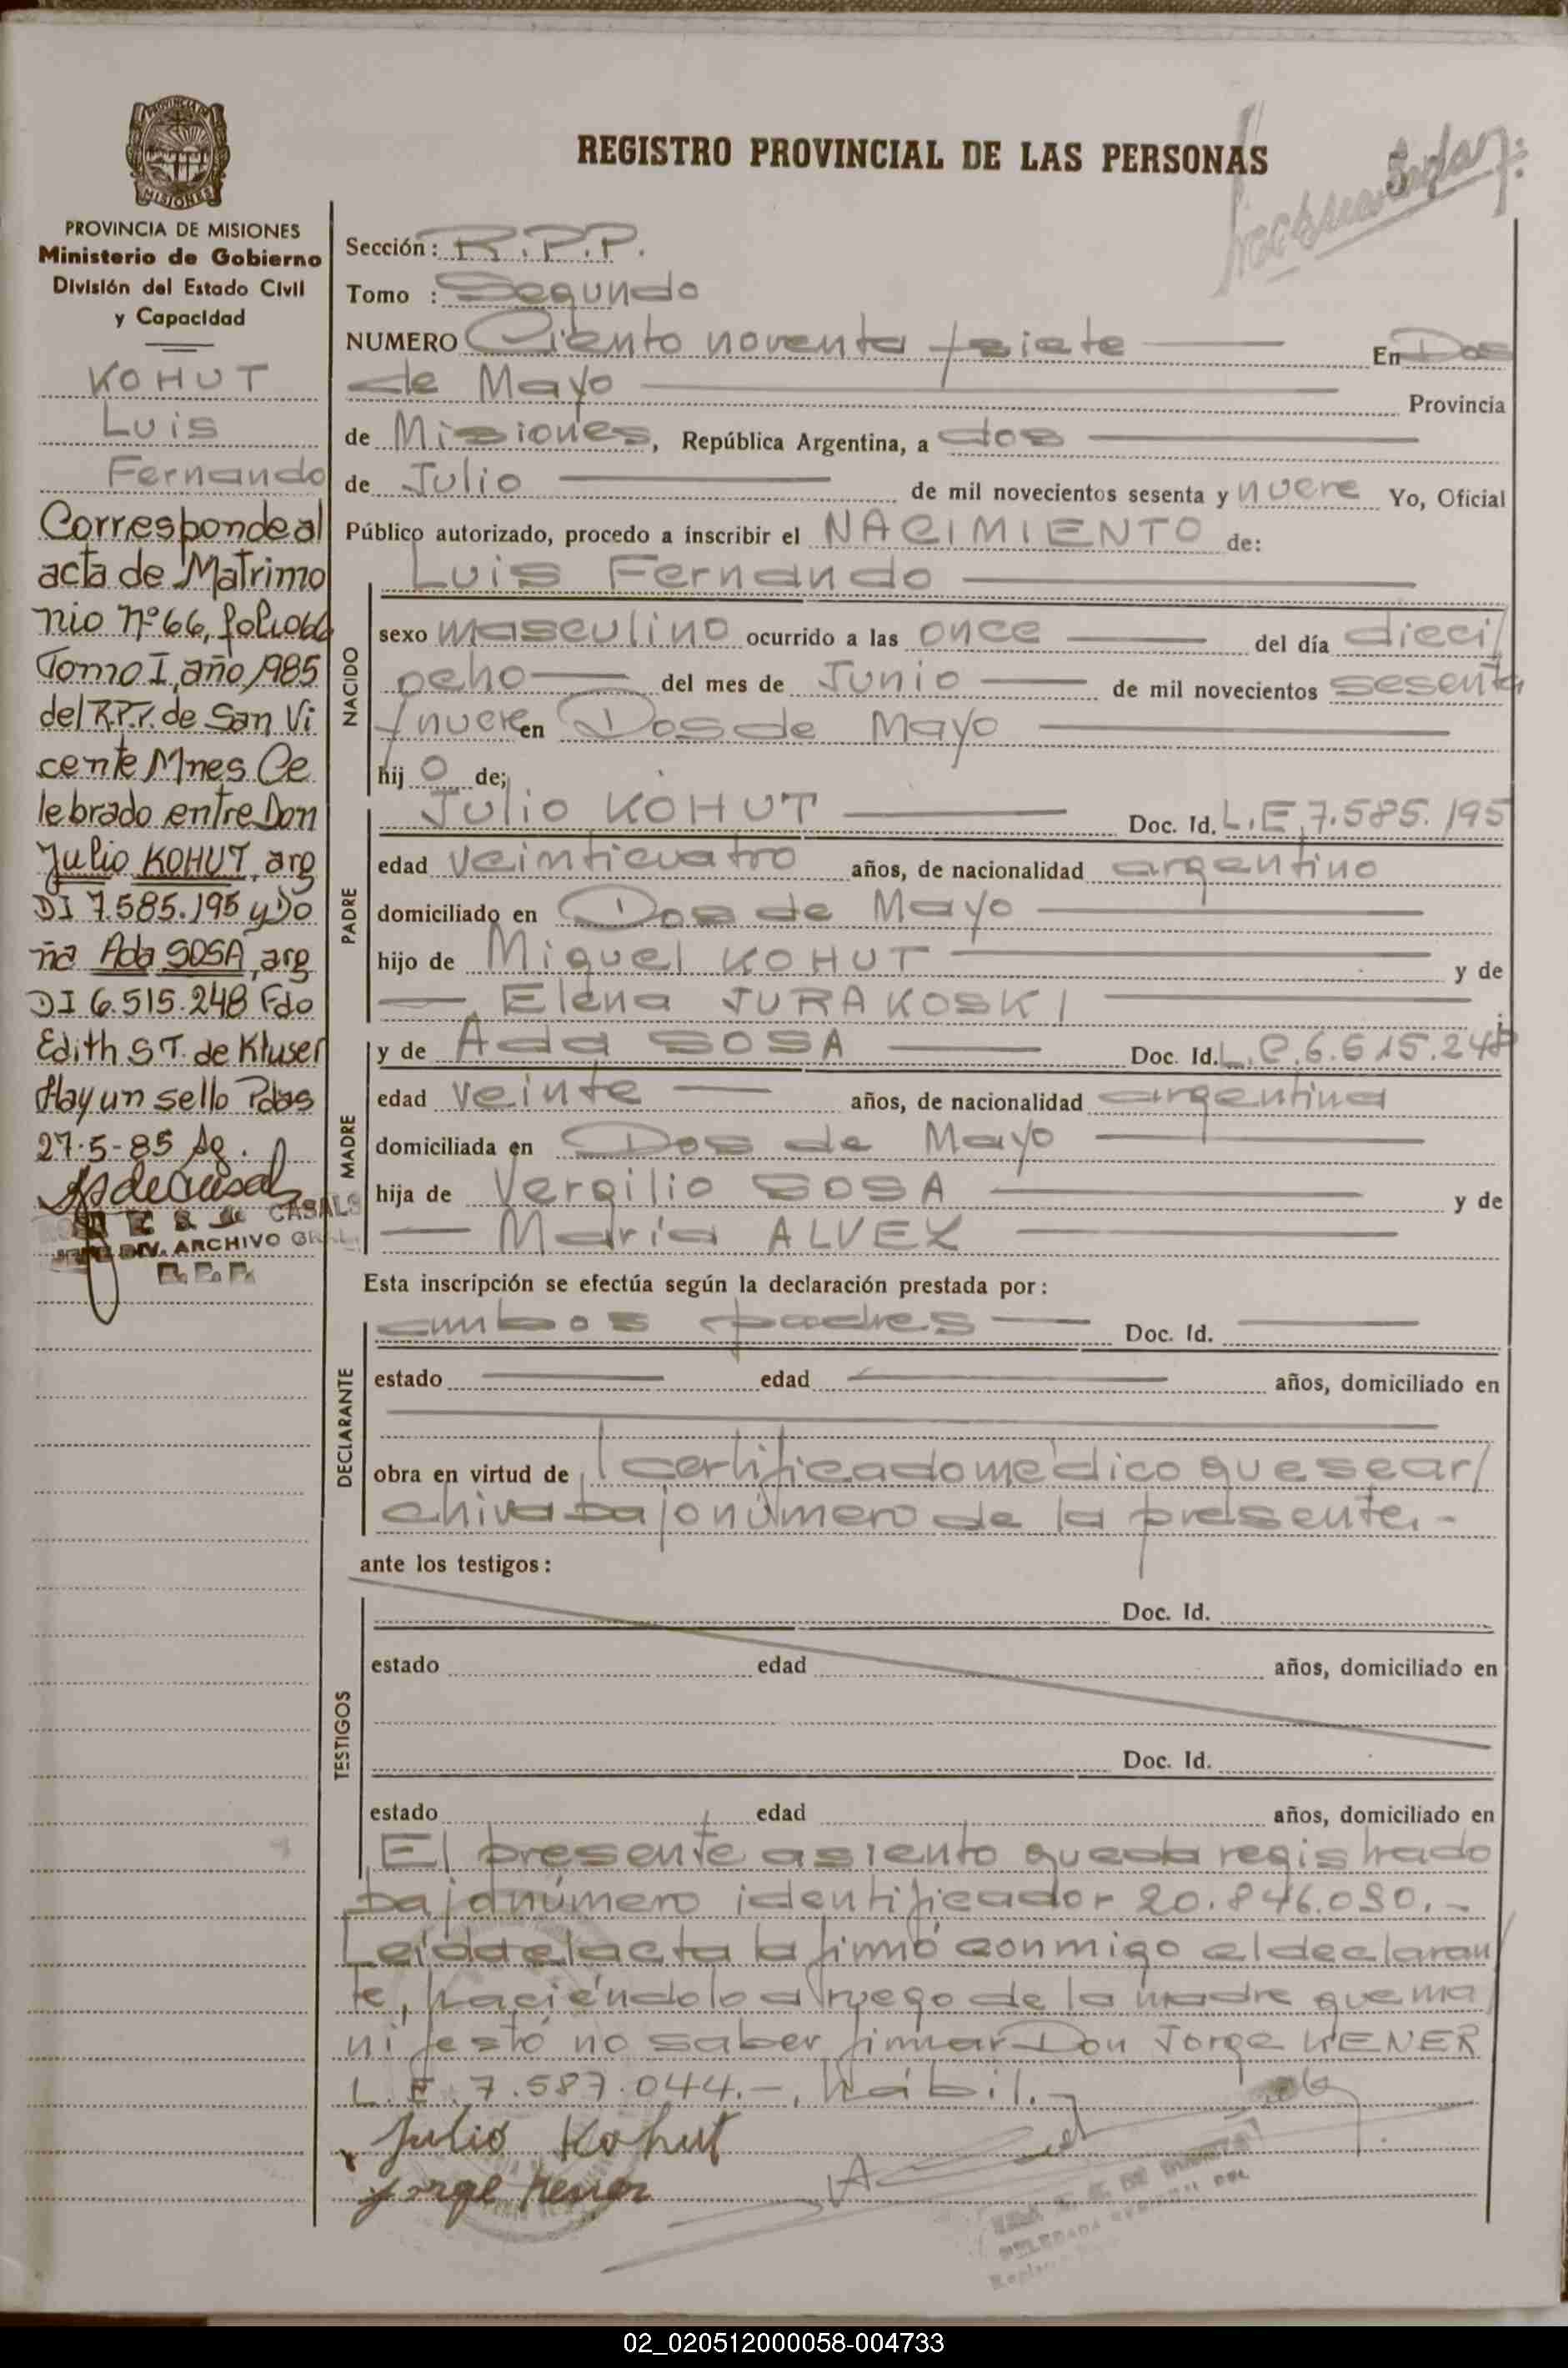 REGISTRO PROVINCIAL DE LAS PERSONAS
PROVINCIA DE MISIONES
MISIONES
PROVINCIA DE MISIONES
Ministerio de Gobierno
División del Estado Civil
y Capacidad
KOHUT
Luis
Fernando
Corresponde al
acta de Matrimo
nio nº 66, folio 066
Tomo I, año 1985
del R.P.P. de San Vi
cente Mnes Ce
lebrado entre Don
Julio KOHUT, arg
DI 7.585.195 y Do
ña Ada SOSA, arg
DI 6.515.248 Fdo
Edith S T. de Kluser
Hay un sello Pdas
27-5-85
CASALS
DIV. ARCHIVO GRAL
R. P. P.
Sección: R.P.P.
Tomo : Segundo
NUMERO Ciento noventa y siete En Dos
de Mayo Provincia
de Misiones, República Argentina, a dos
de Julio de mil novecientos sesenta y nueve Yo, Oficial
Público autorizado, procedo a inscribir el NACIMIENTO de:
Luis Fernando
NACIDO
sexo masculino ocurrido a las once del día dieci/
ocho del mes de Junio de mil novecientos sesenta
y nueve en Dos de Mayo
hij o de;
PADRE
Julio KOHUT Doc. Id. L.E. 7.585.195
edad veinticuatro años, de nacionalidad argentino
domiciliado en Dos de Mayo
hijo de Miguel KOHUT y de
Elena JURAKOSKI
MADRE
y de Ada SOSA Doc. Id. L.C. 6.615.248
edad veinte años, de nacionalidad argentina
domiciliada en Dos de Mayo
hija de Vergilio SOSA y de
María ALVEZ
Esta inscripción se efectúa según la declaración prestada por:
DECLARANTE
ambos padres Doc. Id.
estado edad años, domiciliado en
obra en virtud de l certificado médico que se ar/
chiva bajo número de la presente.-
ante los testigos:
TESTIGOS
Doc. Id.
estado edad años, domiciliado en
Doc. Id.
estado edad años, domiciliado en
El presente asiento queda registrado
bajo número identificador 20.846.090.-
Leída el acta la firmó conmigo el declaran/
te, haciéndolo a ruego de la madre que ma/
nifestó no saber firmar Don Jorge KENER
L.E. 7.587.044.-, hábil.-
Julio Kohut
Jorge Kener
02_020512000058-004733